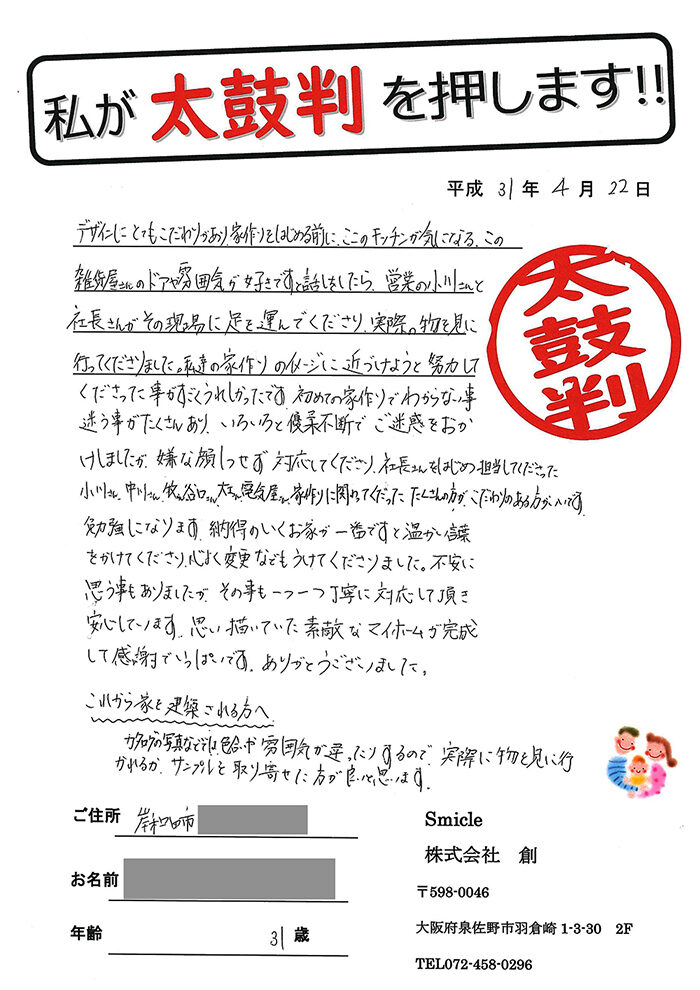 私が 太鼓判 を押します!!
平成 31 年 4 月 22 日
デザインにとてもこだわりがあり、家作りをはじめる前に、ここのキッチンが気になる、この
雑貨屋さんのドアや雰囲気が好きですと話しましたら、営業の小川さんと
社長さんがその現場に足を運んでくださり、実際の物を見に
行ってくださりました。私達の家作りのイメージに近づけようと努力して
くださった事がすごくうれしかったです。初めての家作りでわからない事
迷う事がたくさんあり、いろいろと優柔不断でご迷惑をおか
けしましたが、嫌な顔ひとつせず対応してくださり、社長さんをはじめ担当してくださった
小川さん、中川さん、牧谷口さん、大工さん、電気屋さん、家作りに関わってくださった たくさんの方が、こだわりのある方がいいです
勉強になります。納得のいくお家が一番ですと温かい言葉
をかけてくださり、心よく変更などもうけてくださりました。不安に
思う事もありましたが、その事も一つ一つ丁寧に対応して頂き
安心しています。思い描いていた素敵なマイホームが完成
して感謝でいっぱいです。ありがとうございました。
太鼓判
これから家を建築される方へ
カタログの写真などでは色合いや雰囲気が違ったりするので、実際に物を見に行
かれるか、サンプルを取り寄せた方が良いと思います。
ご住所 岸和田市
お名前
年齢 31 歳
Smicle
株式会社 創
〒598-0046
大阪府泉佐野市羽倉崎 1-3-30 2F
TEL072-458-0296